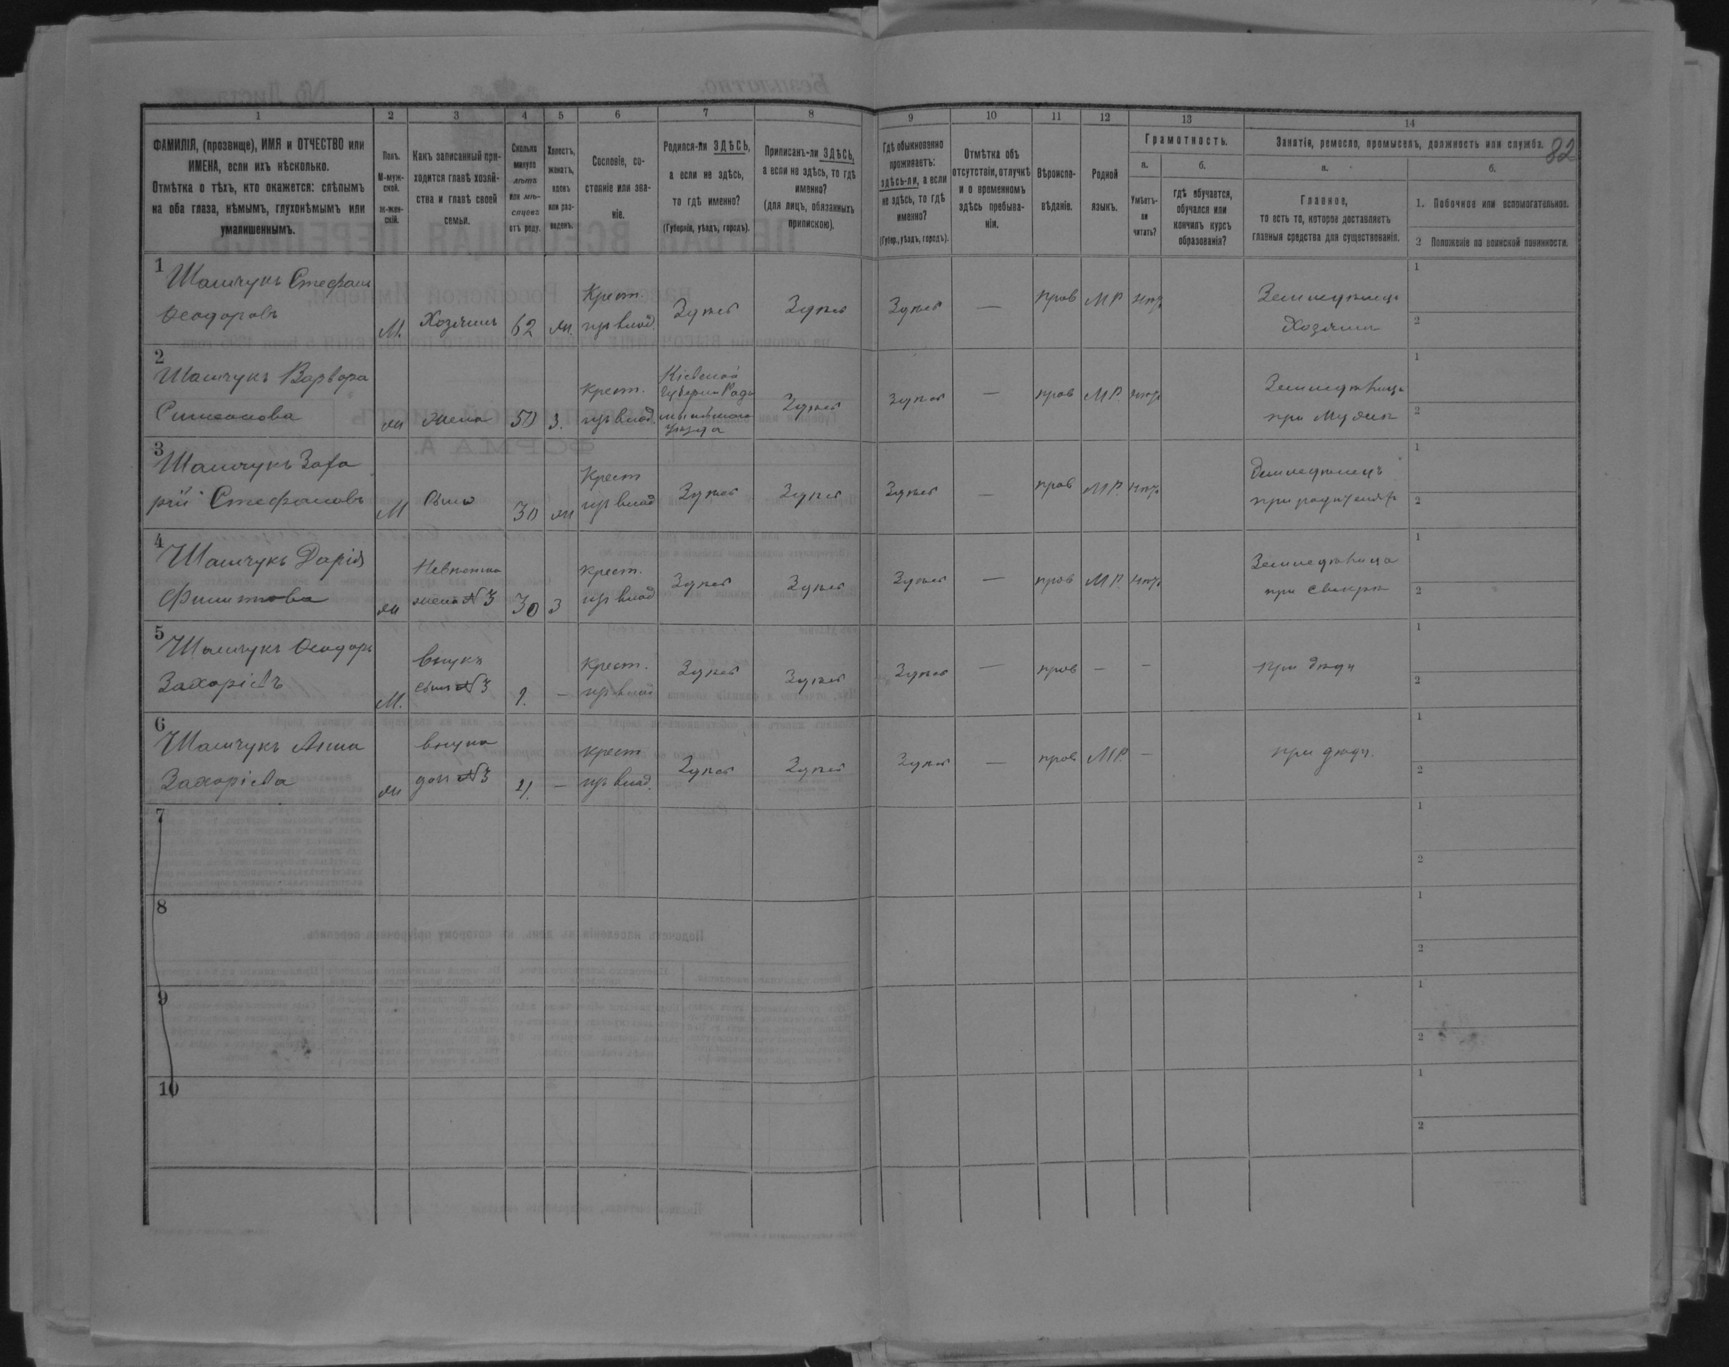 82
1 2 3 4 5 6 7 8 9 10 11 12 13 14
ФАМИЛІЯ, (прозвище), ИМЯ и ОТЧЕСТВО или
ИМЕНА, если ихъ нѣсколько.
Отмѣтка о тѣхъ, кто окажется: слѣпымъ
на оба глаза, нѣмымъ, глухонѣмымъ или
умалишеннымъ.
Полъ.
М-муж-
ской.
ж-жен-
скій.
Какъ записанный при-
ходится главѣ хозяй-
ства и главѣ своей
семьи.
Сколько
минуло
лѣтъ
или мѣ-
сяцевъ
отъ роду.
Холостъ,
женатъ,
вдовъ
или раз-
веденъ.
Сословіе, со-
стояніе или зва-
ніе.
Родился-ли ЗДѢСЬ,
а если не здѣсь,
то гдѣ именно?
(Губернія, уѣздъ, городъ).
Приписанъ-ли ЗДѢСЬ,
а если не здѣсь, то гдѣ
именно?
(для лицъ, обязанныхъ
припискою).
Гдѣ обыкновенно
проживаетъ:
здѣсь-ли, а если
не здѣсь, то гдѣ
именно?
(Губер., уѣздъ, городъ).
Отмѣтка объ
отсутствіи, отлучкѣ
и о временномъ
здѣсь пребыва-
ніи.
Вѣроиспо-
вѣданіе.
Родной
языкъ.
Грамотность.
а.
Умѣетъ-
ли
читать?
б.
гдѣ обучается,
обучался или
кончилъ курсъ
образованія?
Занятія, ремесло, промыселъ, должность или служба.
а.
Главное,
то есть то, которое доставляетъ
главныя средства для существованія.
б.
1. Побочное или вспомогательное.
2 Положеніе по воинской повинности.
1
Шамчукъ Стефанъ
Ѳеодоровъ
М. Хозяинъ 62 ж.
Крест.
из влад.
Здѣсь Здѣсь Здѣсь — прав МР. нѣтъ
Земледѣлецъ
Хозяинъ
1
2
2
Шамчукъ Варвара
Симеонова
ж жена 50 з.
Крест.
из влад
Кіевской
Губерніи Радо
мысльскаго
уѣзда
Здѣсь Здѣсь — прав МР нѣтъ
Земледѣлица
при мужѣ
1
2
3
Шамчукъ Заха
рій Стефановъ
М Сынъ 30 ж
Крест
из влад
Здѣсь Здѣсь Здѣсь — прав МР. нѣтъ
Земледѣлецъ
при родителяхъ
1
2
4
Шамчукъ Дарія
Филиппова
ж
Невѣстка
жена №3
30 з
крест.
из влад
Здѣсь Здѣсь Здѣсь — прав МР нѣтъ
Земледѣлица
при свекрѣ
1
2
5
Шамчукъ Ѳеодоръ
Захаріевъ
М.
внукъ
сынъ №3
1. —
Крест.
из влад
Здѣсь Здѣсь Здѣсь — прав — —
при дѣду
1
2
6
Шамчукъ Анна
Захаріева
ж
внука
доч №3
4. —
крест
из влад.
Здѣсь Здѣсь Здѣсь — прав МР. —
при дѣду.
1
2
7
1
2
8
1
2
9
1
2
10
1
2